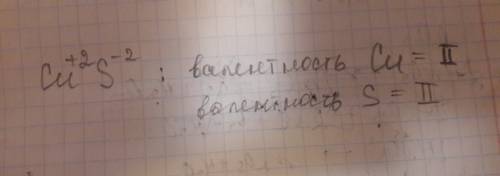 Cu⁺²S⁻² ; валентность Cu = II
валентность S = II